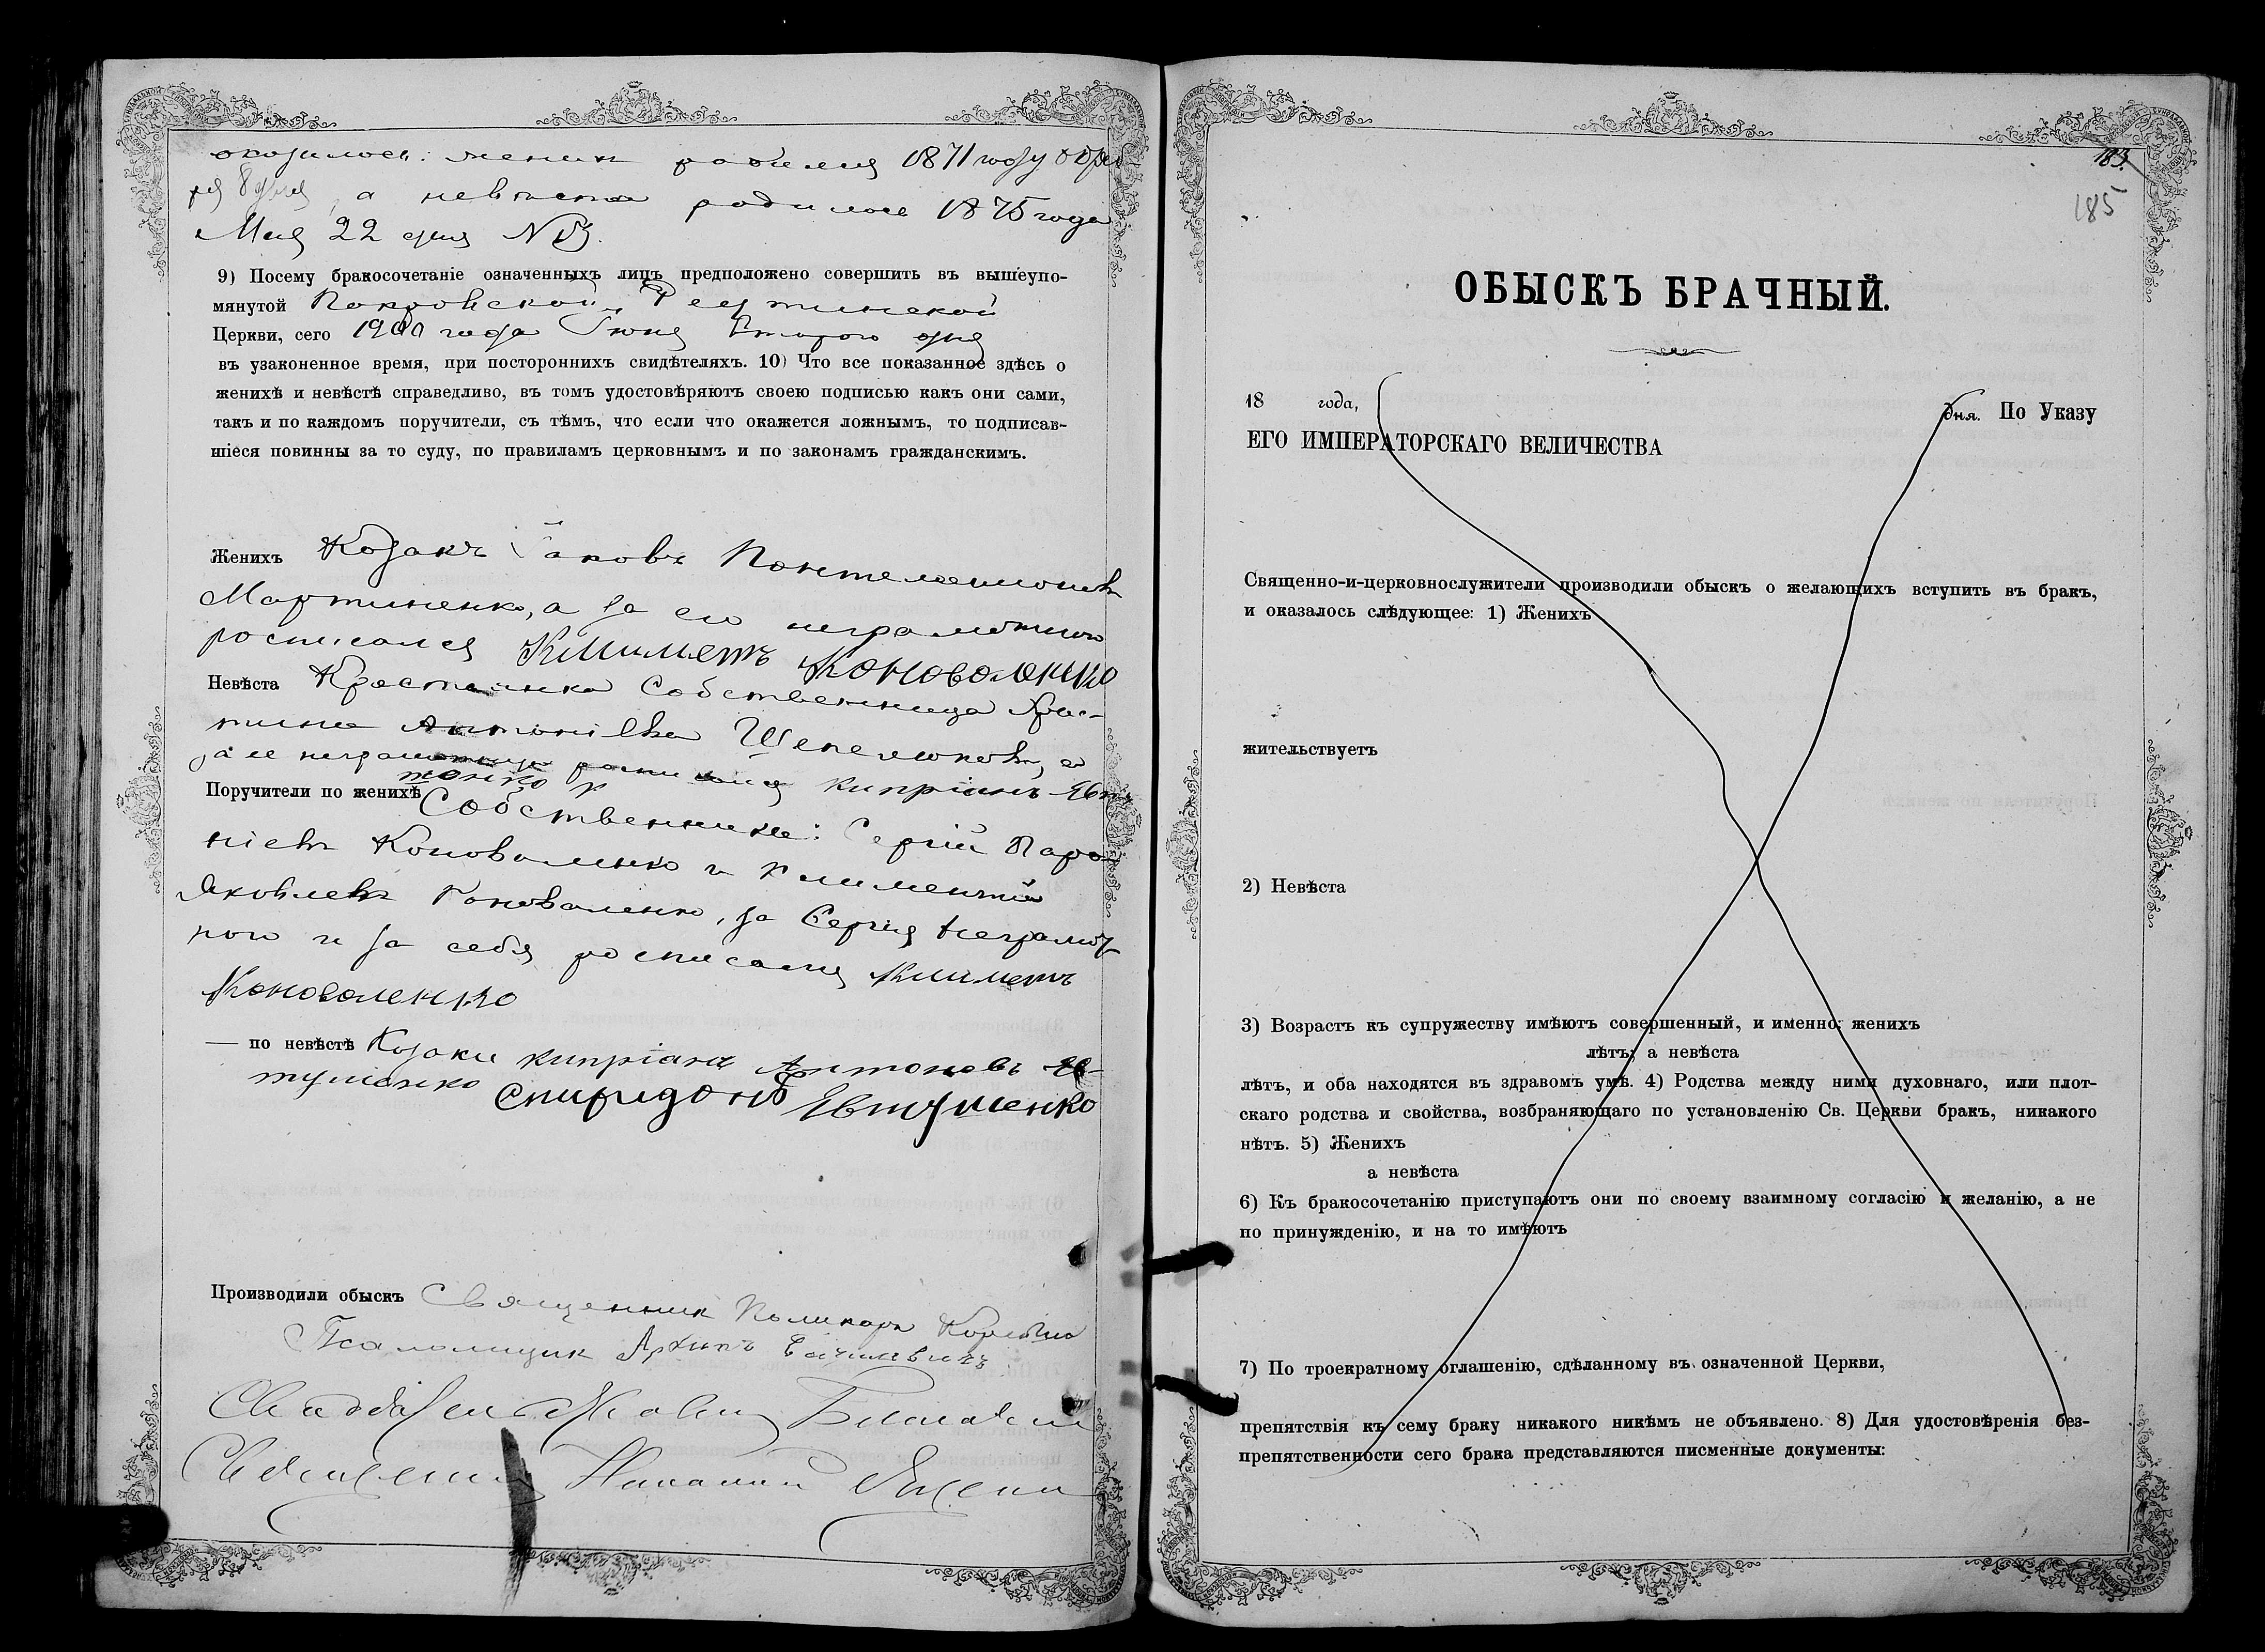 оказалось: жених родился 1871 году Октяб-
ря 8 дня, а невеста родилась 1875 года
Мая 22 дня №
9) Посему бракосочетаніе означенныхъ лицъ предположено совершить въ вышеупо-
мянутой Покровской
Церкви, сего 1900 года Іюня Второго дня
въ узаконенное время, при постороннихъ свидѣтеляхъ. 10) Что все показанное здѣсь о
женихѣ и невѣстѣ справедливо, въ томъ удостовѣряютъ своею подписью какъ они сами,
такъ и по каждомъ поручители, съ тѣмъ, что если что окажется ложнымъ, то подписав-
шіеся повинны за то суду, по правиламъ церковнымъ и по законамъ гражданскимъ.
Женихъ Козакъ Іаковъ Пантелеимоновъ
Мартиненко, а за его неграмотного
росписался Климетъ Коноваленко
Невѣста Крестьянка Собственница Хрис-
тина Антоніева Шепелюкова, а
за ее неграмотную росписался Кипріанъ Євту
шенко
Поручители по женихѣ Собственники: Сергій Паро-
ніевъ Коноваленко и Климентій
Яковлевъ Коноваленко, за Сергія неграмот
ного и за себя росписался Климетъ
Коноваленко
— по невѣстѣ Козаки Кипріанъ Антоновъ Ев-
тушенко Спиридонъ Євтушенко
Производили обыскъ Священник Поликарп
Псаломщик Архипъ
183
185
ОБЫСКЪ БРАЧНЫЙ.
18 года, дня. По Указу
ЕГО ИМПЕРАТОРСКАГО ВЕЛИЧЕСТВА
Священно-и-церковнослужители производили обыскъ о желающихъ вступить въ бракъ,
и оказалось слѣдующее: 1) Женихъ
жительствуетъ
2) Невѣста
3) Возрастъ къ супружеству имѣютъ совершенный, и именно: женихъ
лѣтъ; а невѣста
лѣтъ, и оба находятся въ здравомъ умѣ. 4) Родства между ними духовнаго, или плот-
скаго родства и свойства, возбраняющаго по установленію Св. Церкви бракъ, никакого
нѣтъ. 5) Женихъ
а невѣста
6) Къ бракосочетанію приступаютъ они по своему взаимному согласію и желанію, а не
по принужденію, и на то имѣютъ
7) По троекратному оглашенію, сдѣланному въ означенной Церкви,
препятствія къ сему браку никакого никѣмъ не объявлено. 8) Для удостовѣренія без-
препятственности сего брака представляются писменные документы: